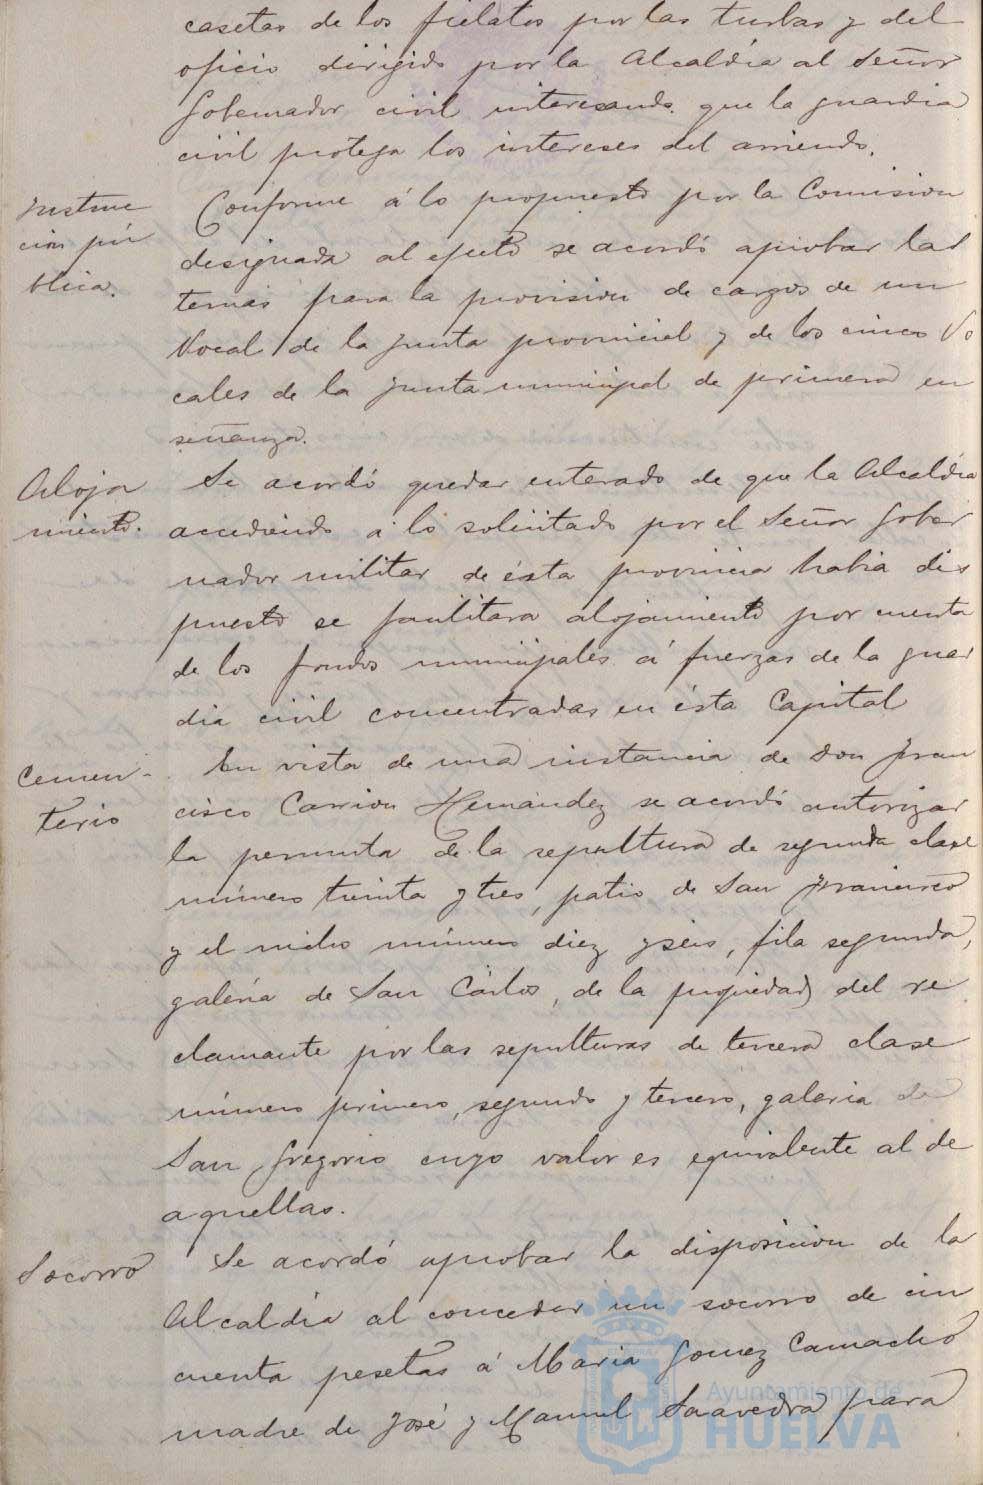 casetas de los fielatos por las turbas y del
oficio dirigido por la Alcaldía al Señor
Gobernador civil interesando que la guardia
civil proteja los intereses del arriendo.
Instruc
ción pú
blica.
Conforme á lo propuesto por la Comision
designada al efecto se acordó aprobar las
ternas para la provision de cargos de un
Vocal de la junta provincial y de los cinco Vo
cales de la junta municipal de primera en
señanza.
Aloja
miento.
Se acordó quedar enterado de que la Alcaldía
accediendo á lo solicitado por el Señor Gober
nador militar de ésta provincia habia dis
puesto se facilitara alojamiento por cuenta
de los fondos municipales á fuerzas de la guar
dia civil concentradas en ésta Capital
Cemen-
terio
En vista de una instancia de Don Fran
cisco Carrion Hernández se acordó autorizar
la permuta de la sepultura de segunda clase
número treinta y tres, patio de San Francisco
y el nicho número diez y seis, fila segunda,
galería de San Cárlos, de la propiedad del re
clamante por las sepulturas de tercera clase
número primero, segundo y tercero, galeria de
San Gregorio cuyo valor es equivalente al de
aquellas.
Socorro
Se acordó aprobar la disposicion de la
Alcaldía al conceder un socorro de cin
cuenta pesetas á María Gomez Camacho
madre de José y Manuel Saavedra para
Ayuntamiento de
HUELVA